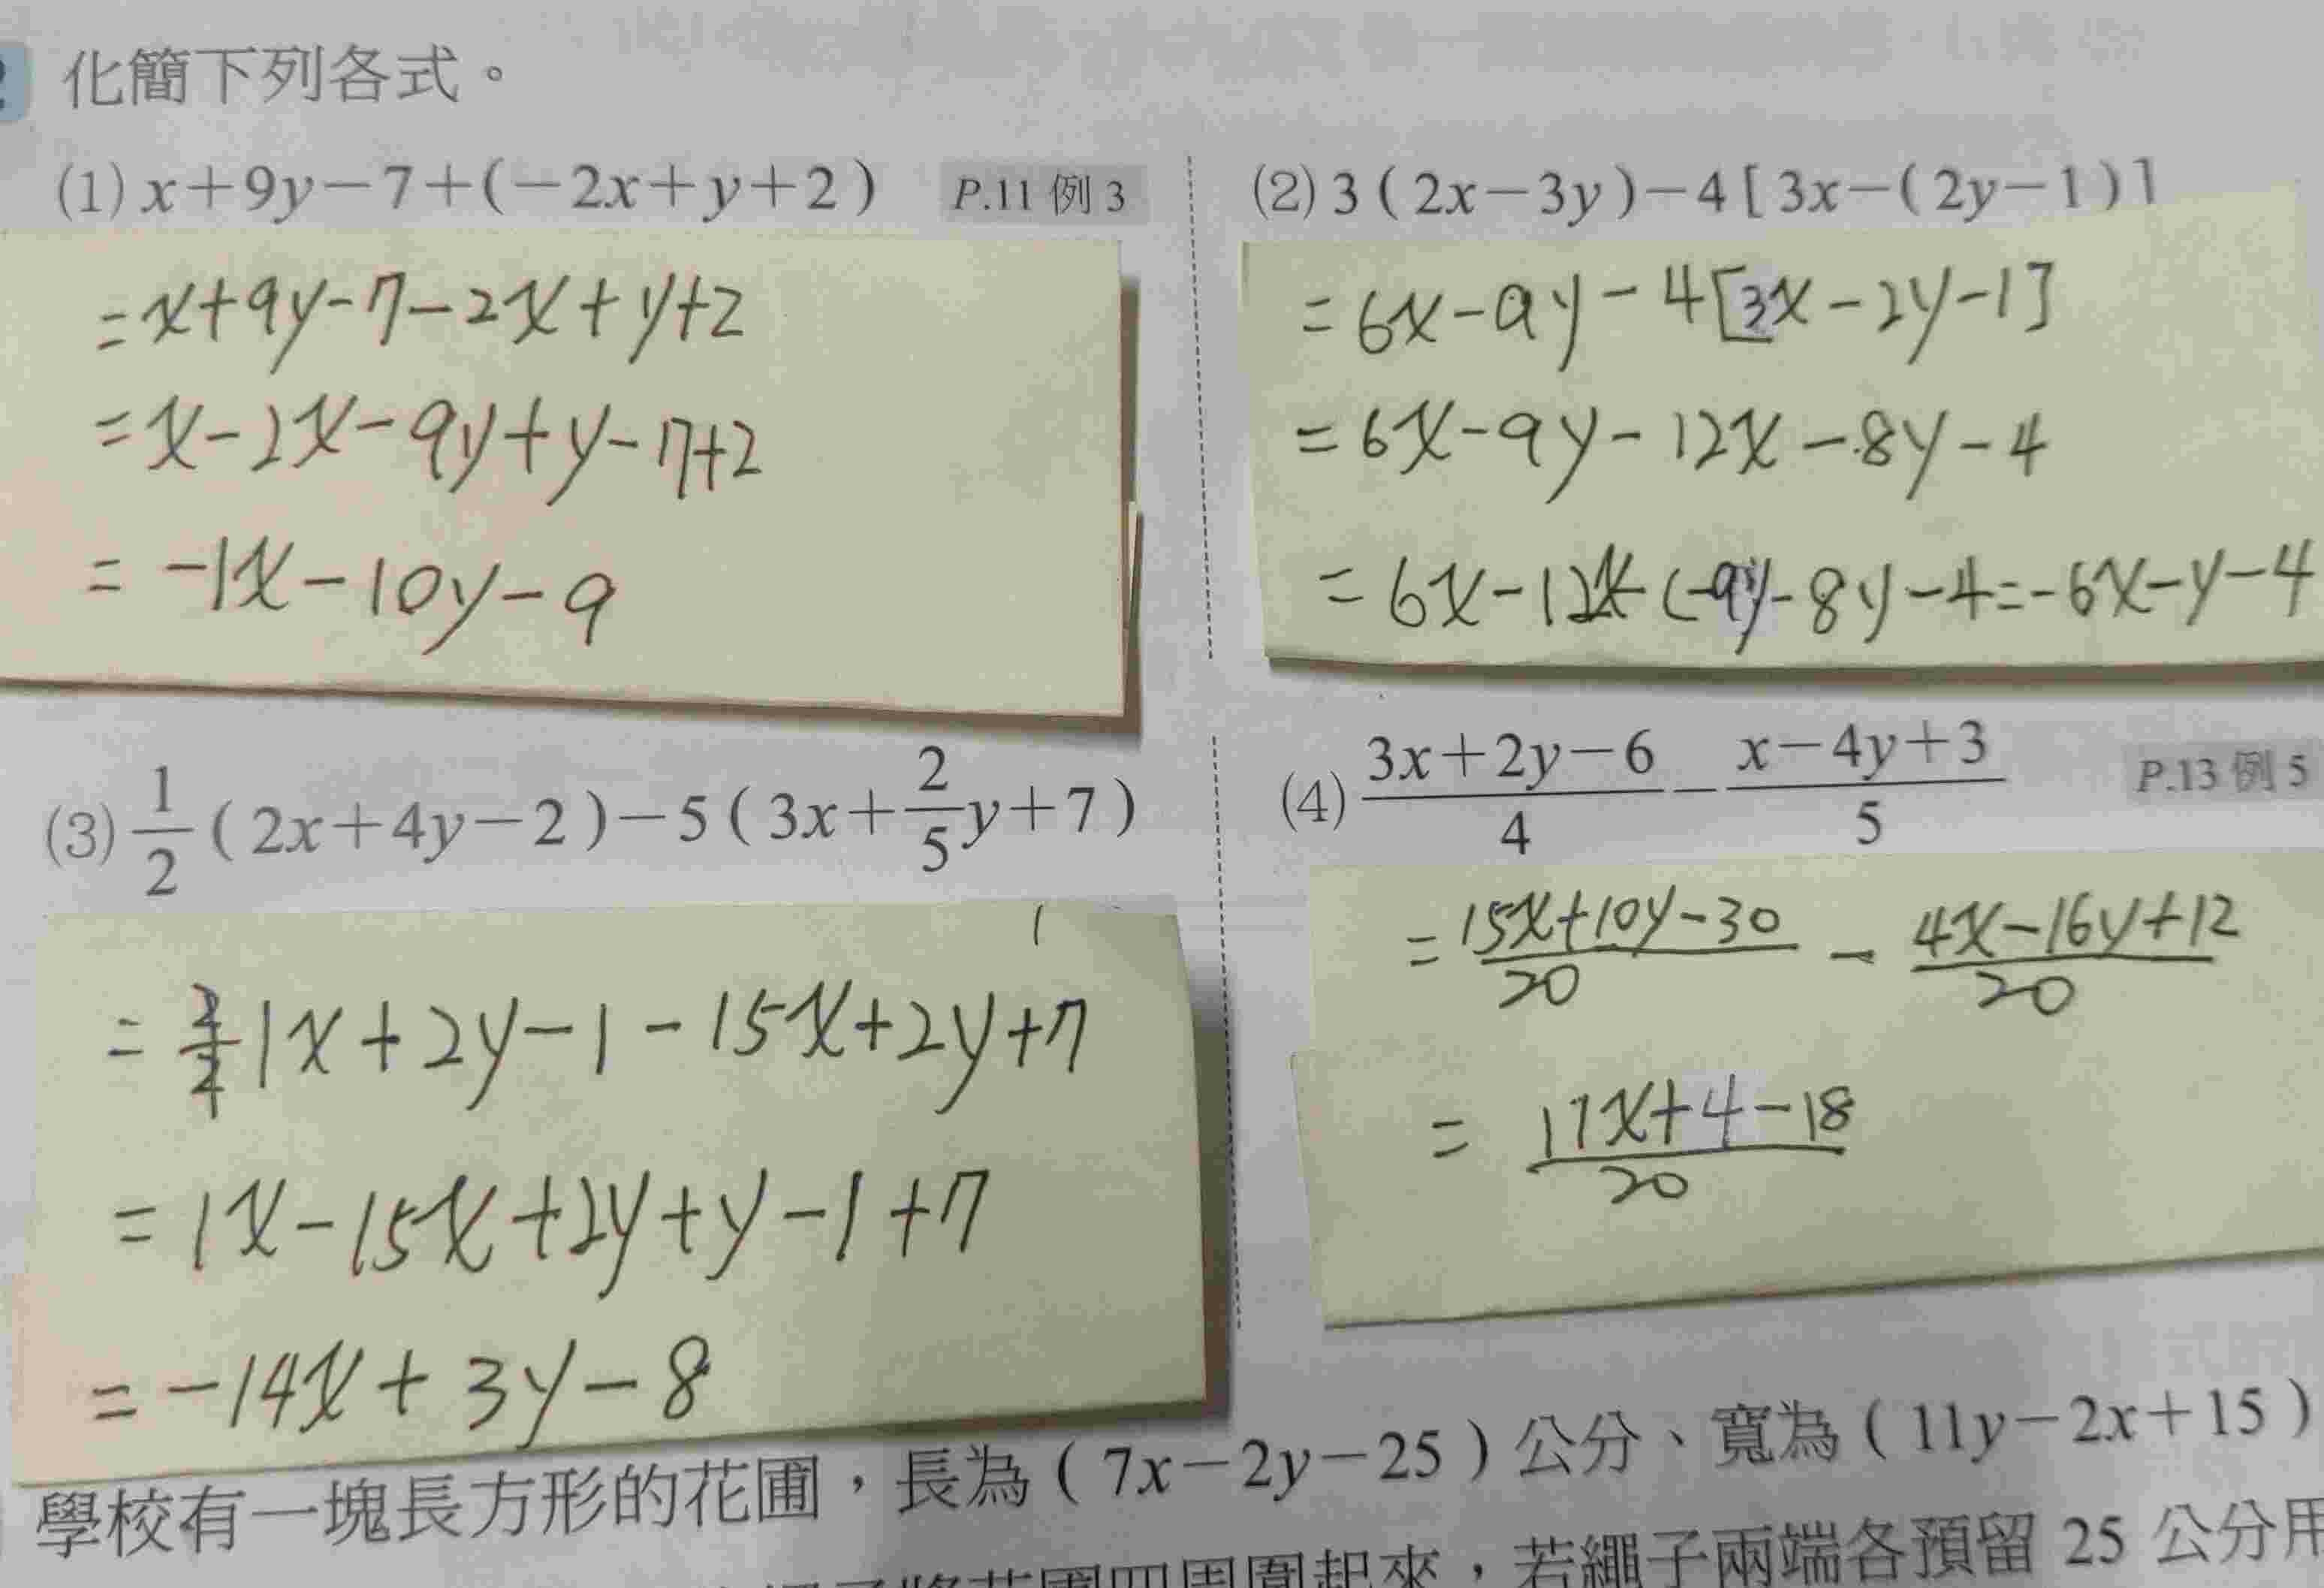 化簡下列各式。
(1) x+9y-7+(-2x+y+2) P.11 例 3
=x+9y-7-2x+y+2
=x-2x-9y+y-7+2
= -1x-10y-9
(2) 3(2x-3y)-4[3x-(2y-1)]
=6x-9y-4[3x-2y-1]
=6x-9y-12x-8y-4
=6x-12x-(-9y-8y-4=-6x-y-4
(3) 1/2(2x+4y-2)-5(3x+2/5y+7)
= 1x+2y-1-15x+2y+7
=1x-15x+2y+y-1+7
=-14x+3y-8
(4) (3x+2y-6)/4-(x-4y+3)/5 P.13 例 5
=(15x+10y-30)/20-(4x-16y+12)/20
=(11x+4-18)/20
學校有一塊長方形的花圃，長為(7x-2y-25)公分、寬為(11y-2x+15)
圍起來，若繩子兩端各預留 25 公分用